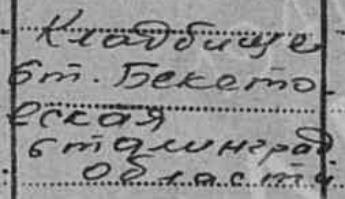 Кладбище
ст. Бекето
вская
сталинград
области